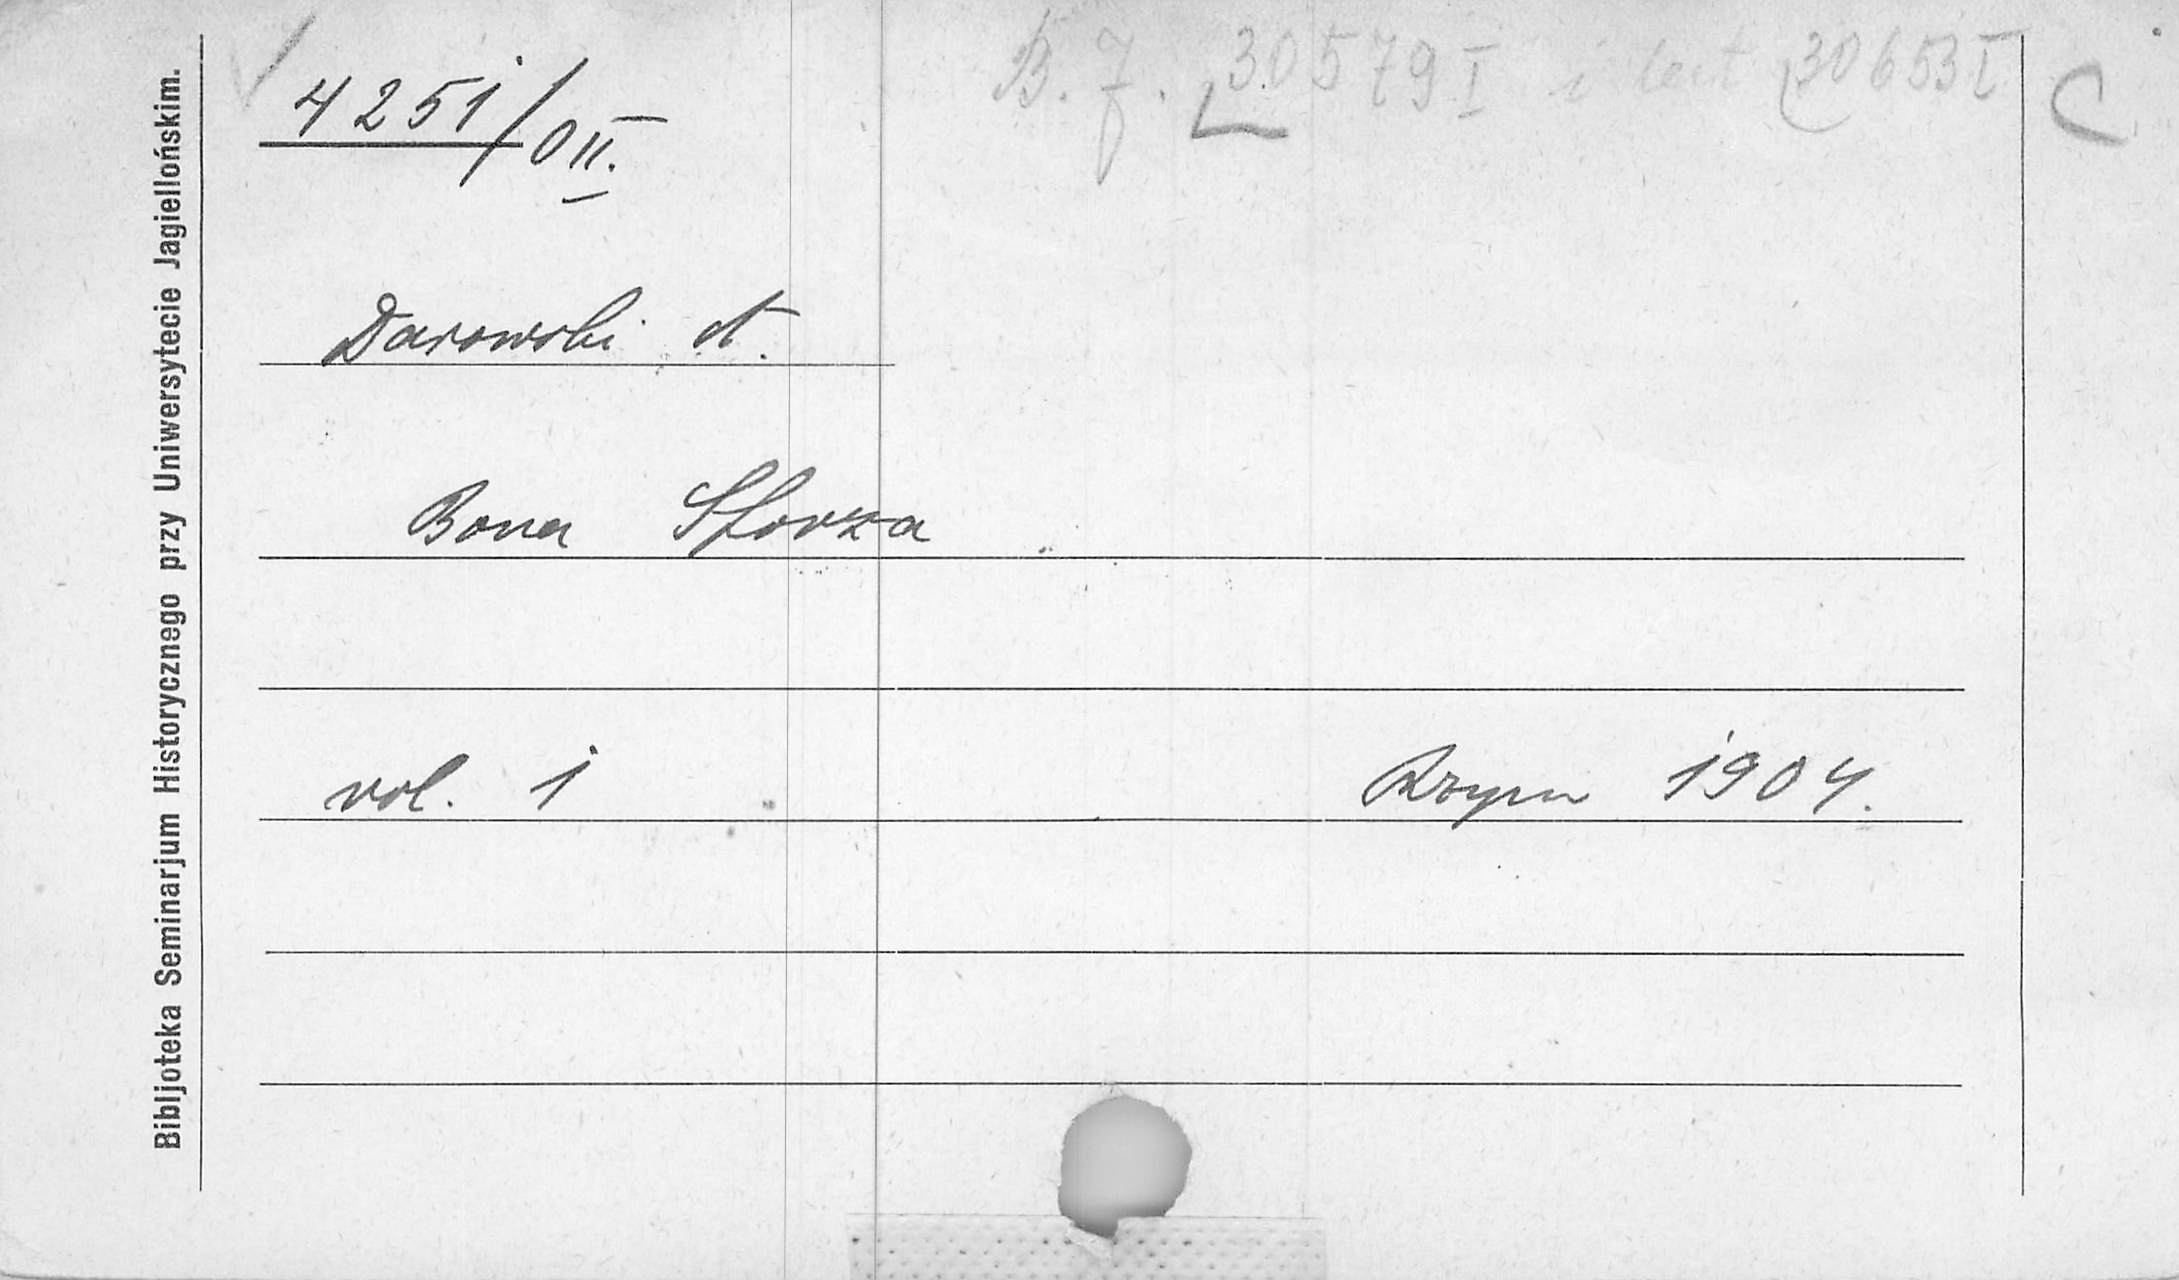 4251/OII.
B. J. 30579 I i 30653 I
C
Darowski A.
Bona Sforza
vol. 1 Rzym 1904.
Bibljoteka Seminarjum Historycznego przy Uniwersytecie Jagiellońskim.